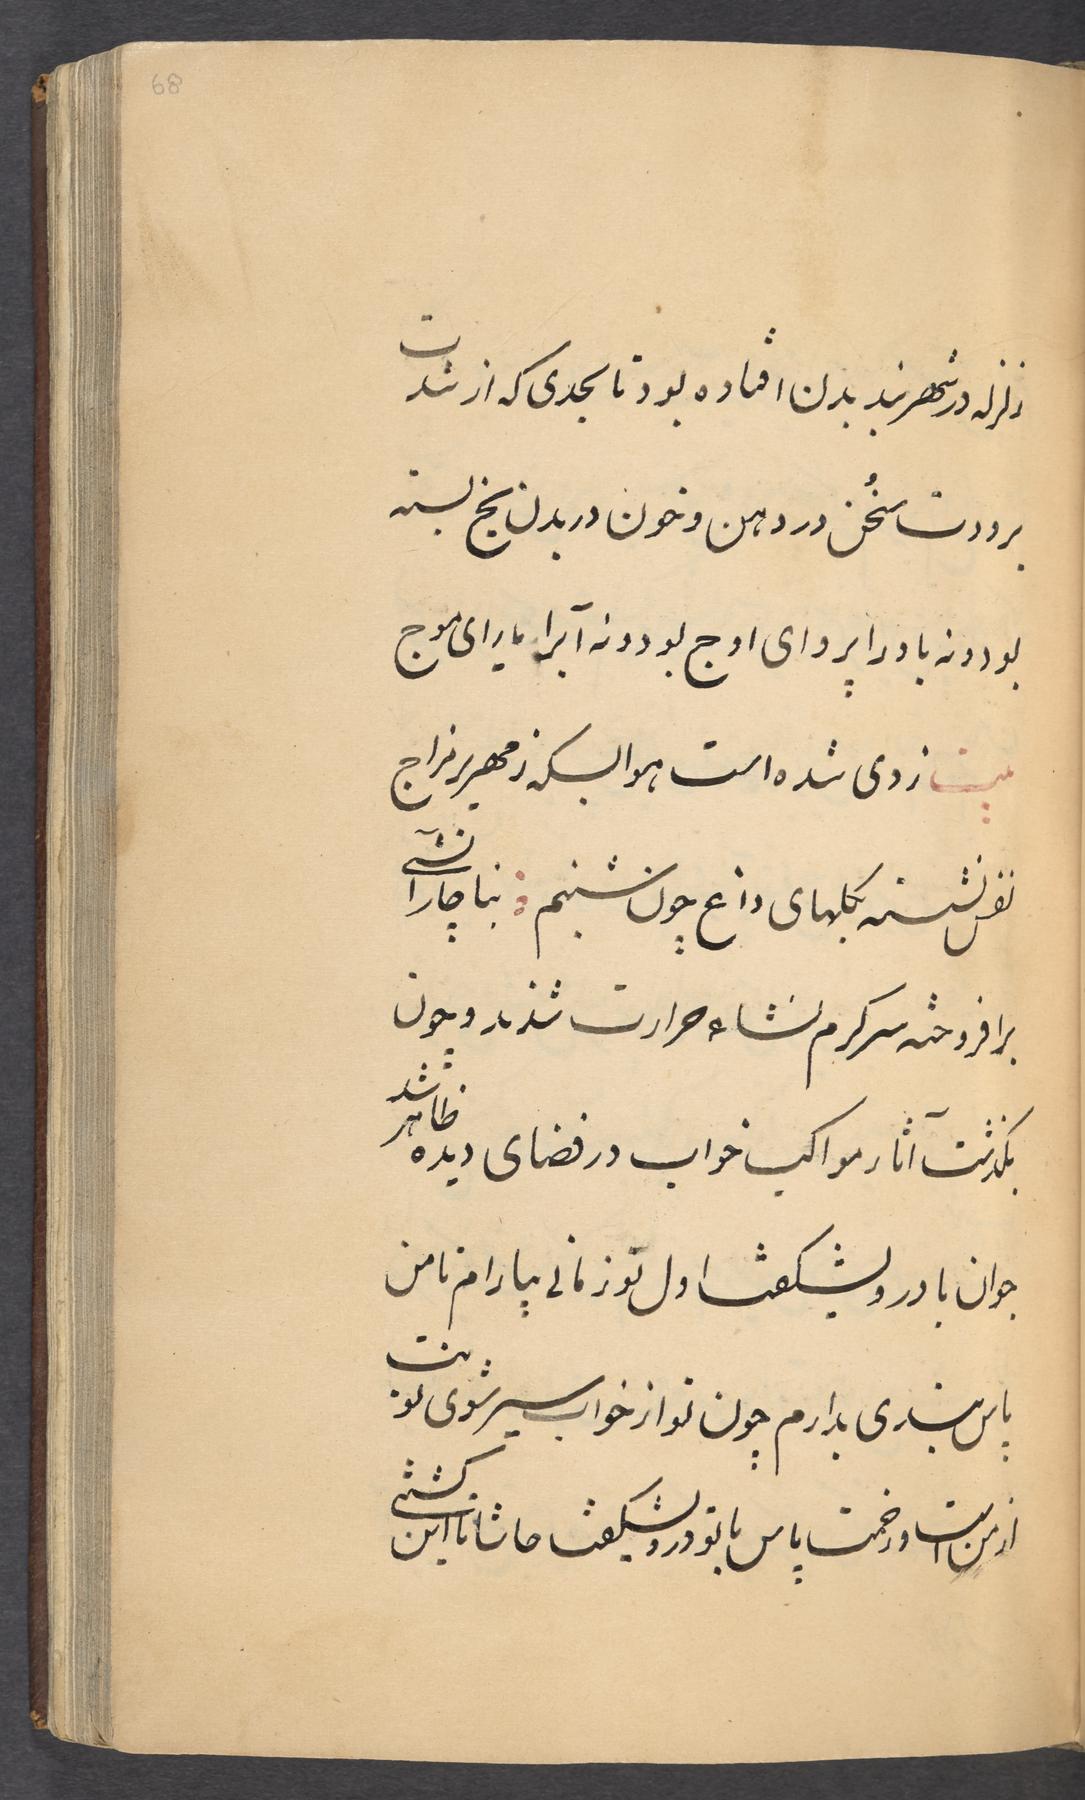 68
زلزله در شهر بند بدن افتاده بود تا بحدی که از شدت
برودت سخُن در دهن و خون در بدن یخ بسته
بود و نه باد را پروای اوج بود و نه آبرا یارای موج
بیت ز دی شده است هوا بسکه زمهریر مزاج
نفس نشسته بگلهای داغ چون شبنم : بناچار آتشی
برافروخته سرگرم نشاء حرارت شدند و چون
بگذشت آثار مواکب خواب در فضای دیده ظاهر شد
جوان با درویش گفت اول تو زمانی بیارام تا من
پاس بداری بدارم چون تو از خواب سیر شوی نوبت
از من است و زحمت پاس با تو درویش گفت حاشا تا این کشتی